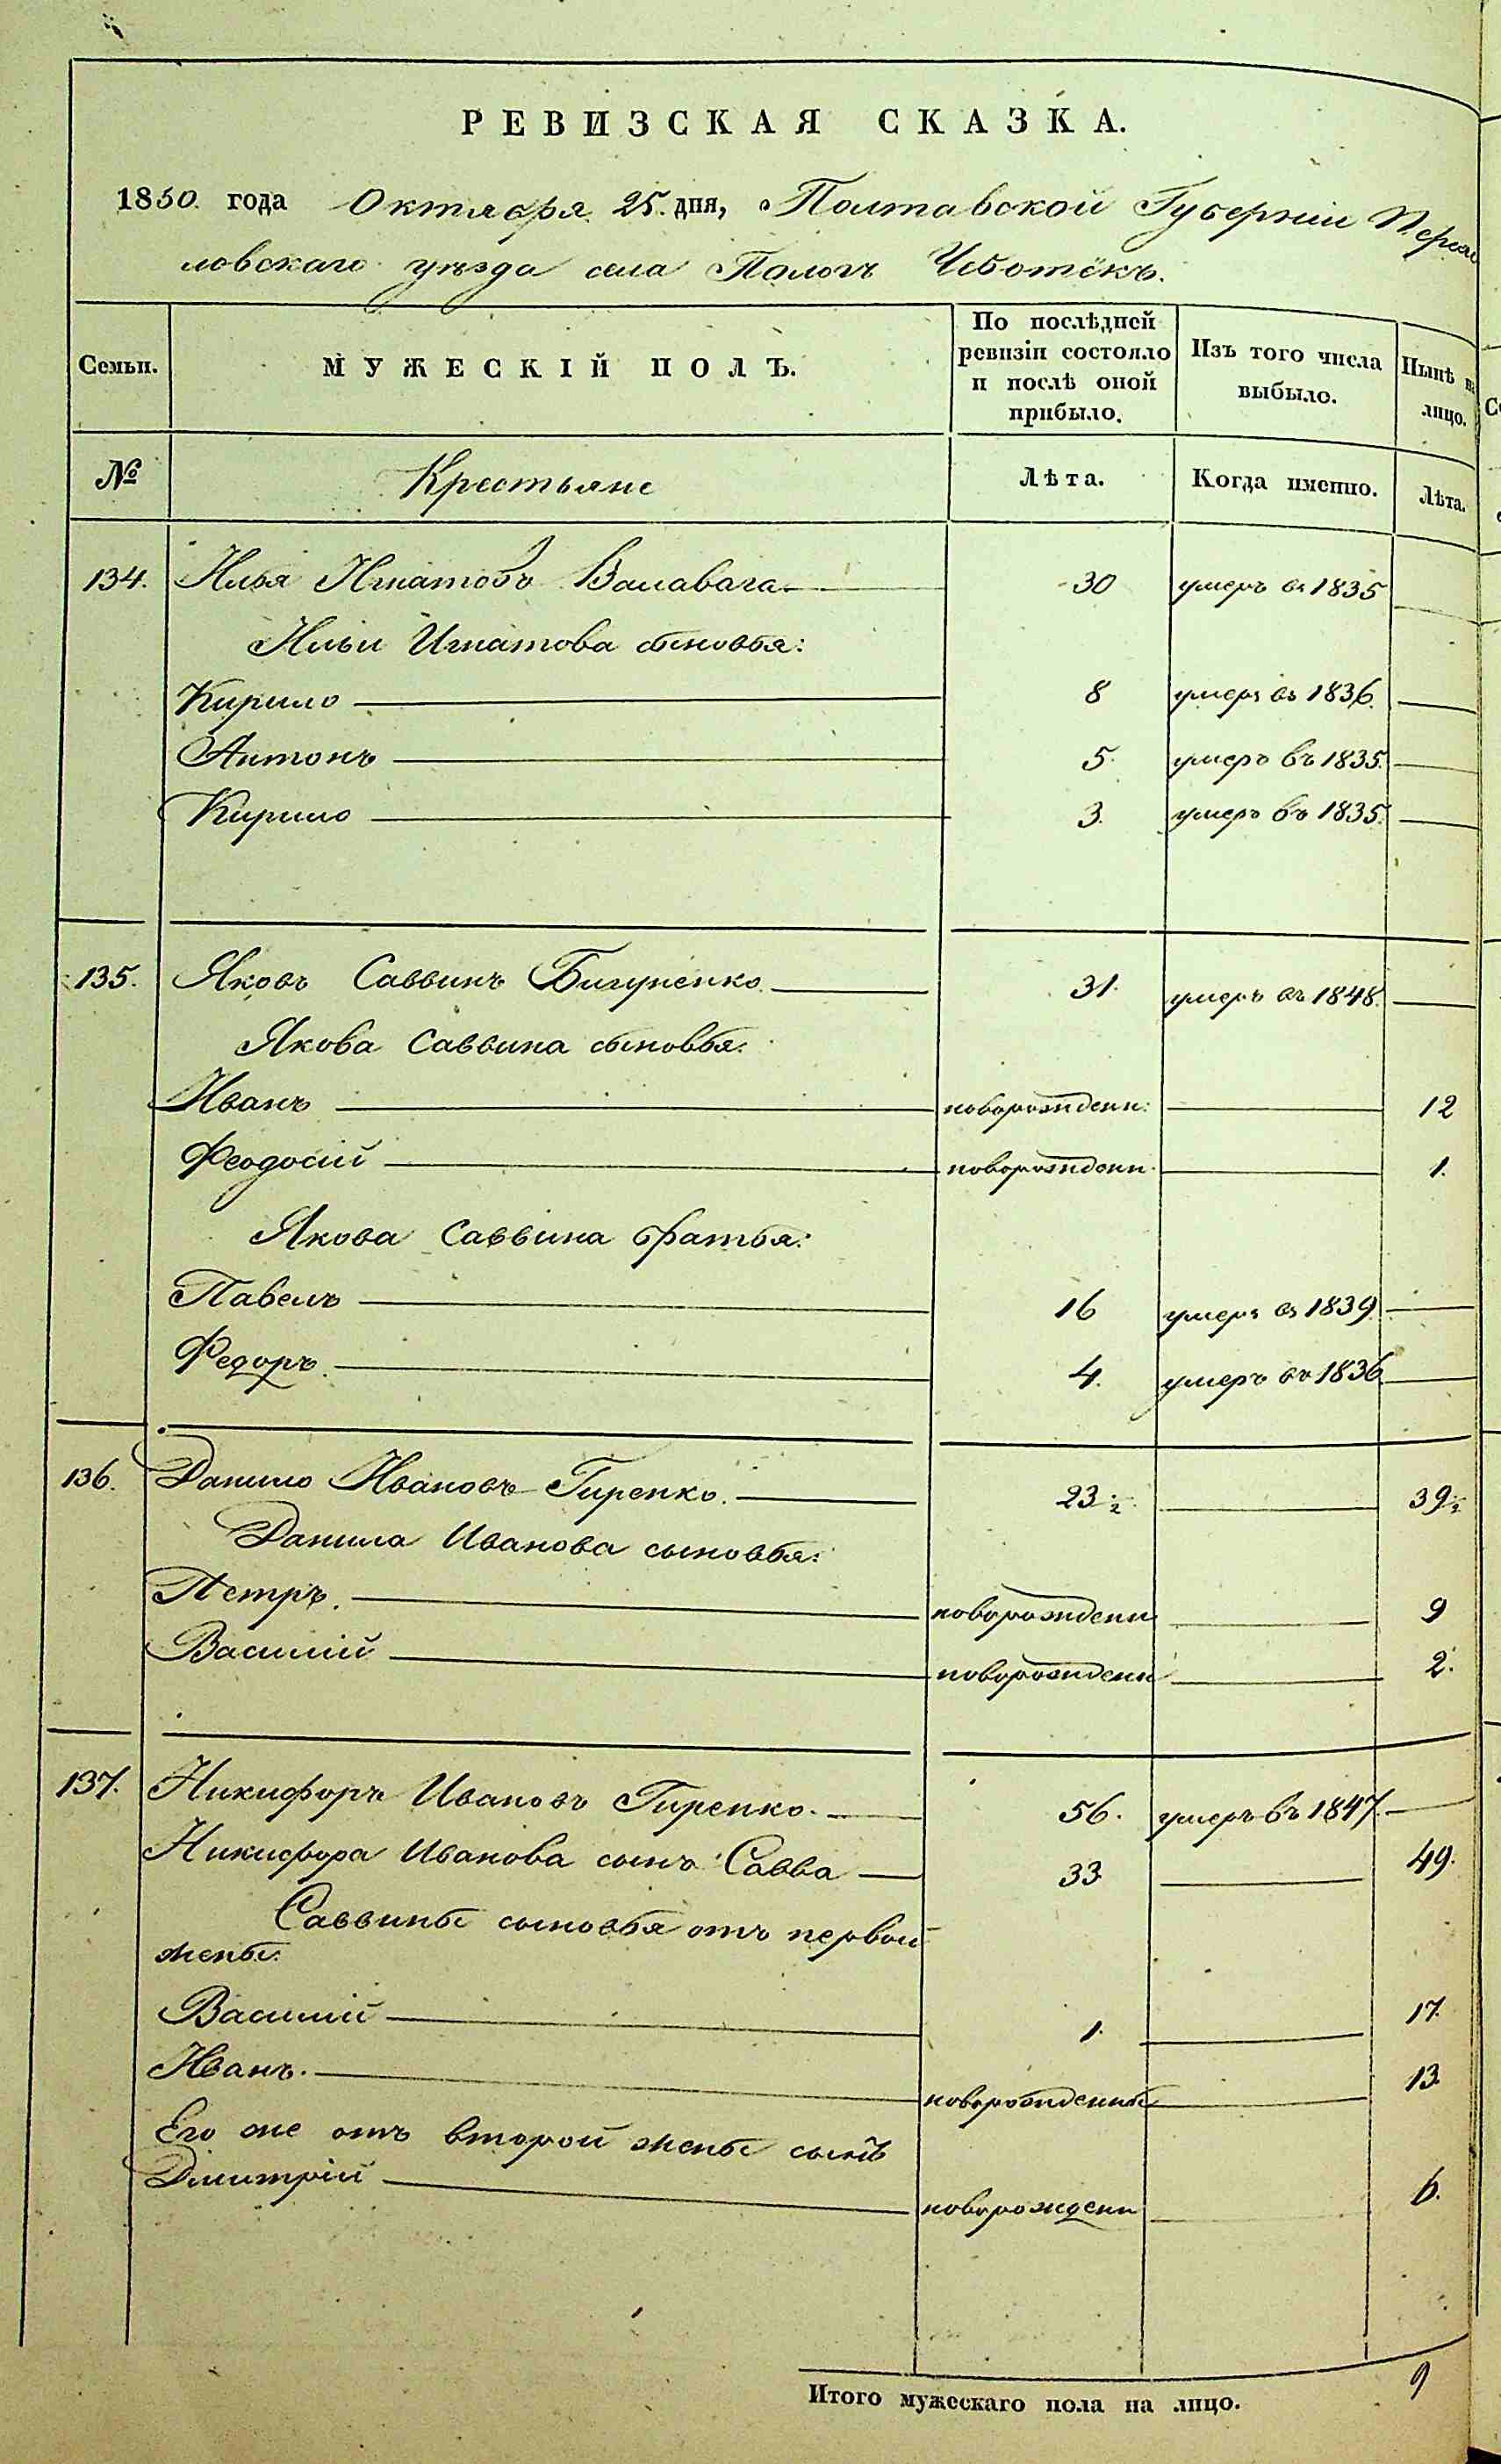 РЕВИЗСКАЯ СКАЗКА.
1850. года Октября 25. дня, Полтавской Губернии Перея
ловскаго уѣзда села Пологъ Чеботокъ.
Семьи. МУЖЕСКІЙ ПОЛЪ. По послѣдней ревизіи состояло и послѣ оной прибыло. Изъ того числа выбыло. Нынѣ на лицо.
№ Крестьяне Лѣта. Когда именно. Лѣта.
134. Илья Игнатовъ 30 умеръ въ 1835
Ильи Игнатова сыновья:
Кирило 8 умеръ въ 1836.
Антонъ 5. умеръ въ 1835.
Кирило 3. умеръ въ 1835.
135. Яковъ Саввинъ Бигуненко 31. умеръ въ 1848.
Якова Саввина сыновья:
Иванъ новорожденн: 12
Феодосій новорожденн. 1.
Якова Саввина братья:
Павелъ 16 умеръ въ 1839
Федоръ. 4. умеръ въ 1836
136. Данило Ивановъ Гиренко. 23 1/2. 39 1/2
Данила Иванова сыновья:
Петръ. новорожденн 9
Василій новорожденн 2.
137. Никифоръ Ивановъ Гиренко. 56. умеръ въ 1847.
Никифора Иванова сынъ Савва 33. 49.
Саввины сыновья отъ первой
жены:
Василій 1. 17.
Иванъ. новорожденный 13.
Его же отъ второй жены сынъ
Дмитрій новорожденн 6.
Итого мужескаго пола на лицо. 9